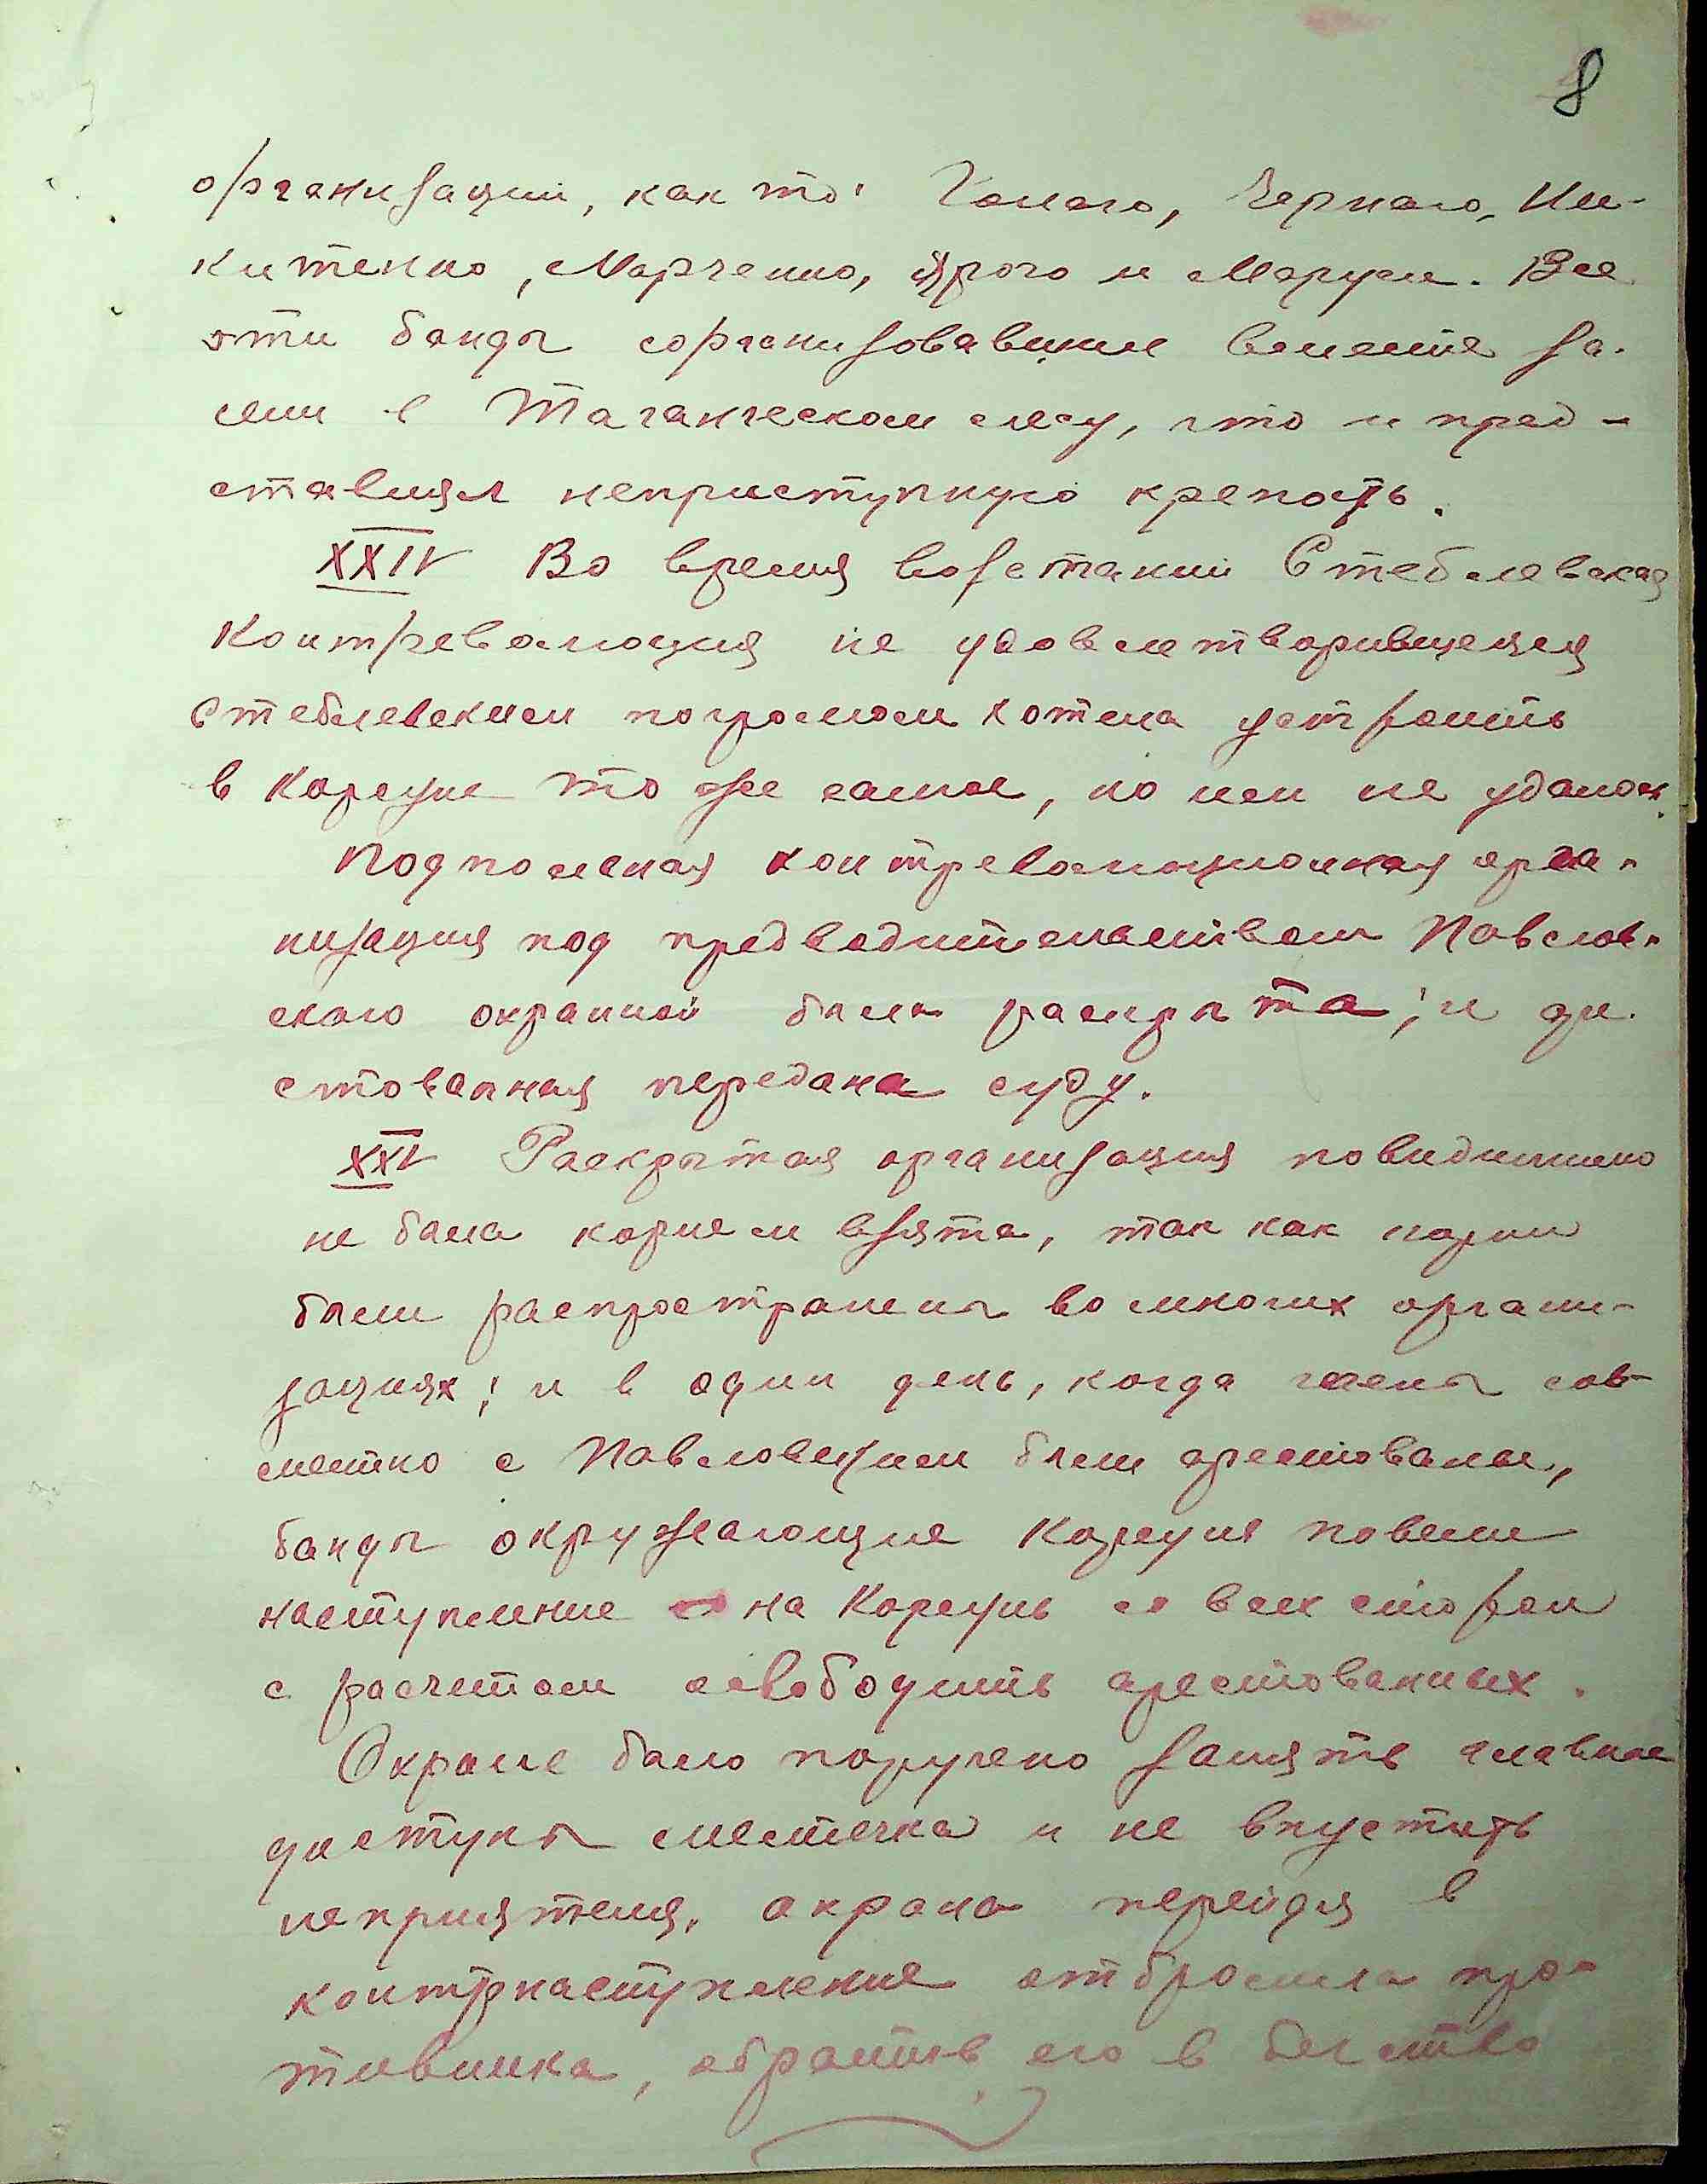 8
организации, как то: Голого, Черного, Ни-
китенко, Марченко, Ярого и Маруси. Все
эти банды сорганизовавшие вместе за-
сели в Таганческом лесу, что и пред-
ставлял неприступную крепость.
XXIV Во время возстаний Стеблевская
контрреволюция не удовлетворившейся
Стеблевским погромом хотела устроить
в Корсуне то же самое, но им не удалось.
Подпольная контрреволюционная орга-
низация под предводительством Павлов-
ского охраной была раскрыта; и аре-
стованная передана суду.
XXV Раскрытая организация повидимому
не была корнем взята, так как корни
были распространены во многих органи-
зациях; и в один день, когда члены сов-
местно с Павловским были арестованы,
банды окружающие Корсунь повели
наступление на Корсунь со всех сторон
с расчетом освободить арестованных.
Охране было поручено занять главные
доступы местечка и не впустить
неприятеля, охрана перейдя в
контрнаступление отбросила про-
тивника, обратив его в бегство